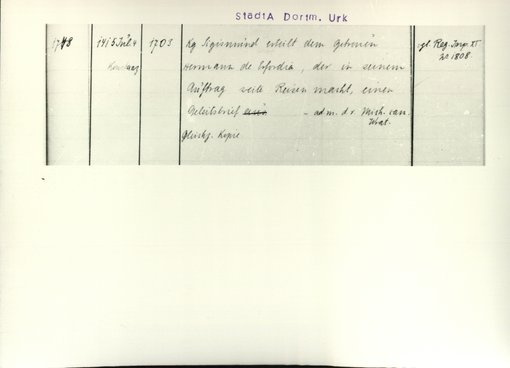 StadtA Dortm. Urk
1748 1415 Juli 4 1703 Kg Sigismund erteilt dem Getreuen vgl. Reg. Imp. XI
Konstanz Hermann de Erfordia, der in seinem nr 1808.
Auftrag weite Reisen macht, einen
Geleitsbrief – adm. d. r. Mich. can.
Wrat.
Gleichz. Kopie